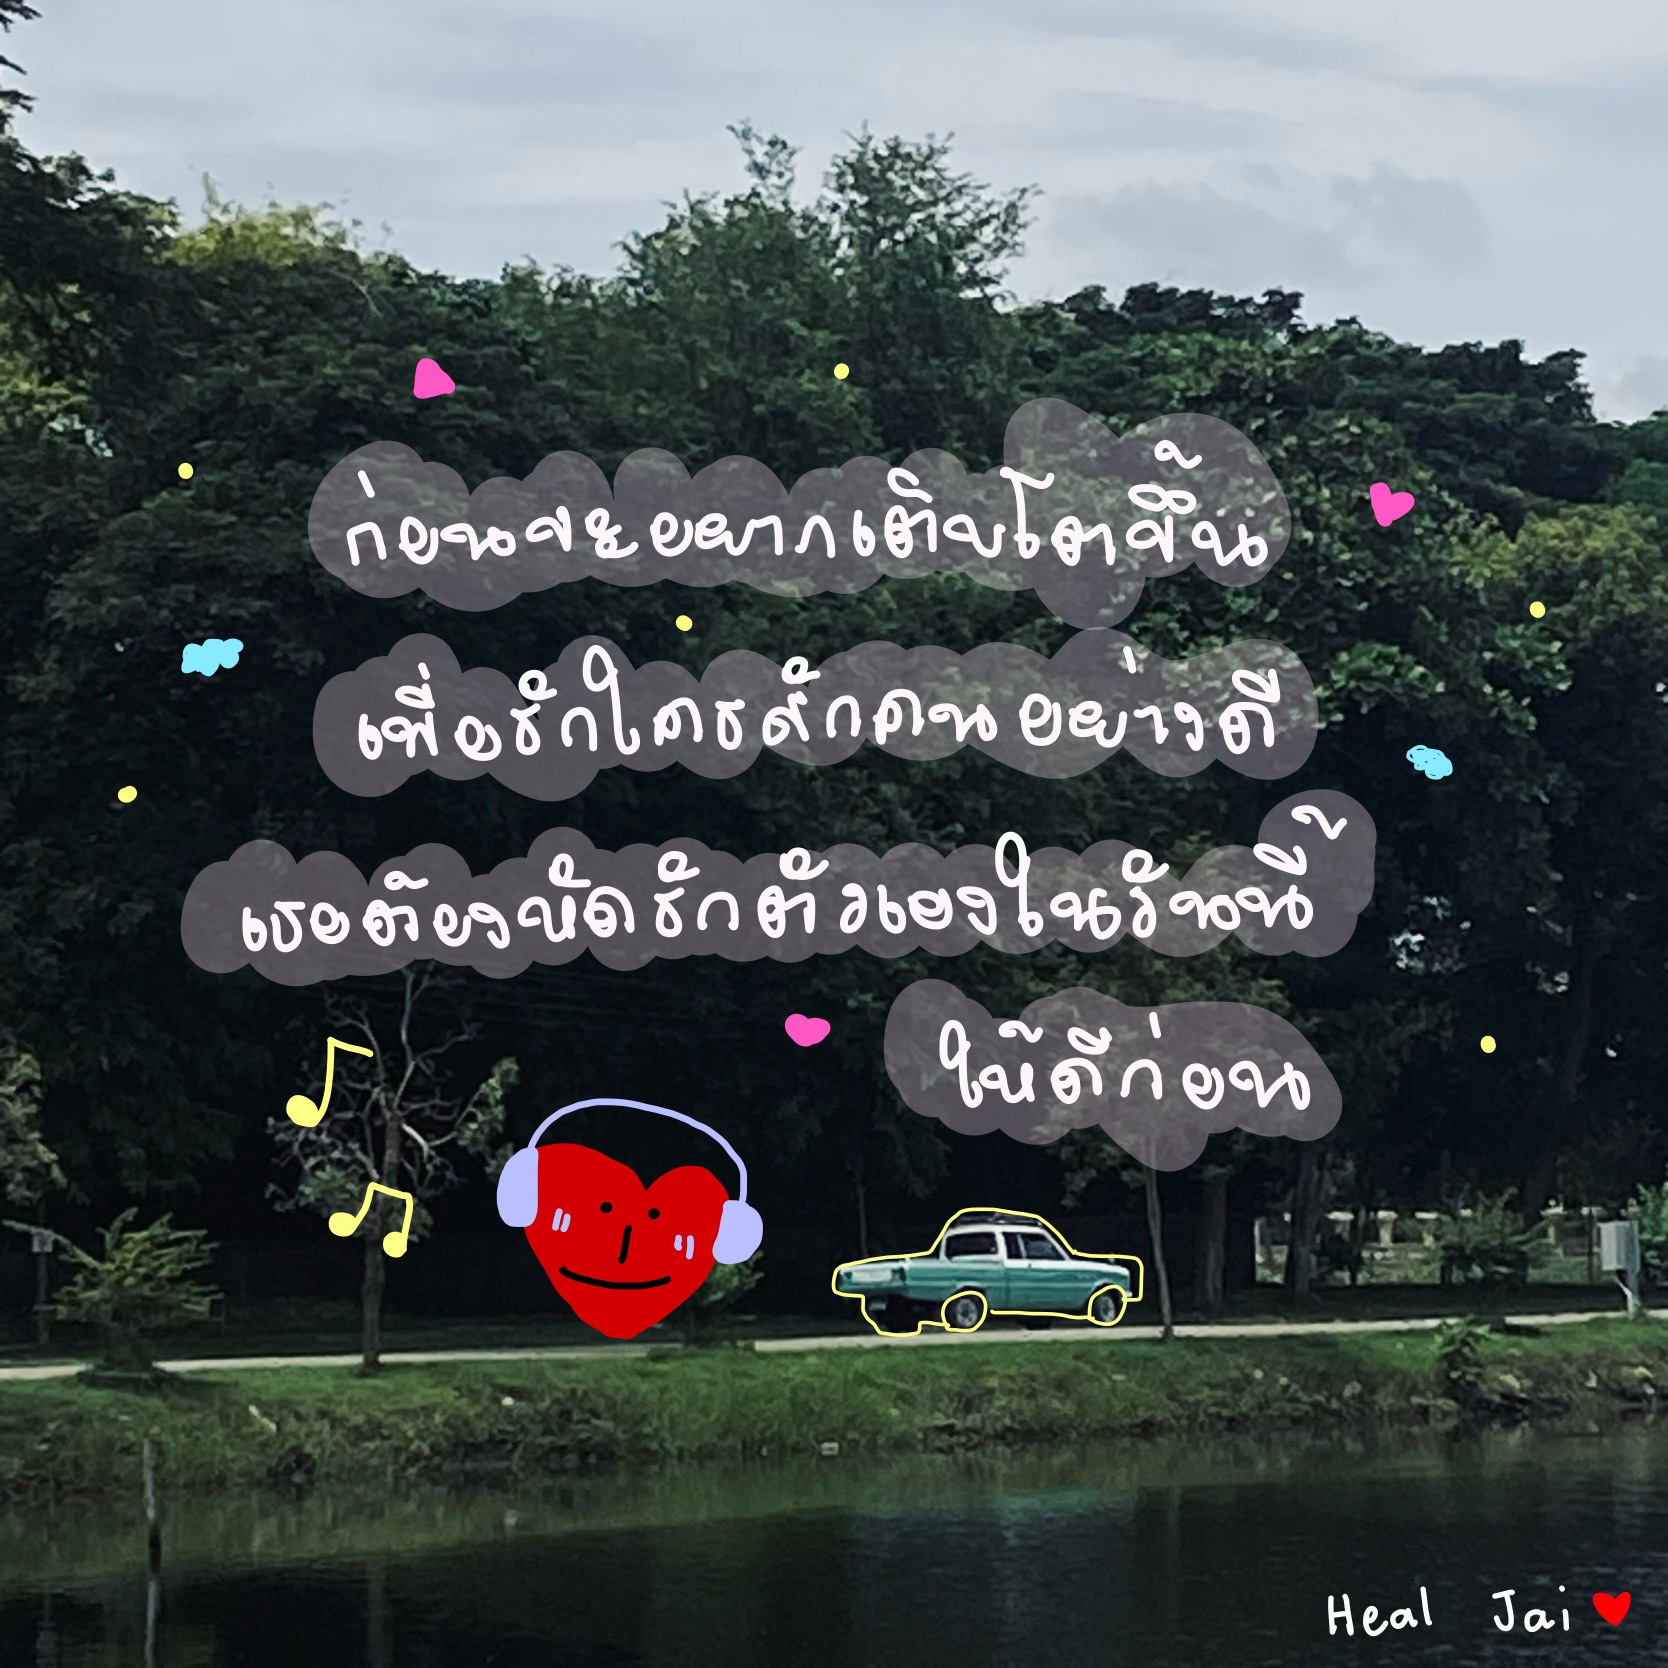 ก่อนจะอยากเติบโตขึ้น
เพื่อรักใครสักคนอย่างดี
เธอต้องหัดรักตัวเองในวันนี้
ให้ดีก่อน
Heal Jai